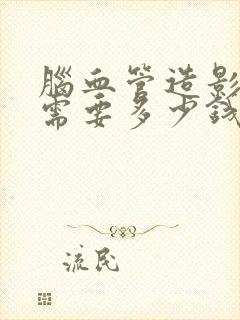 腦血管造影
需要多少錢
流民